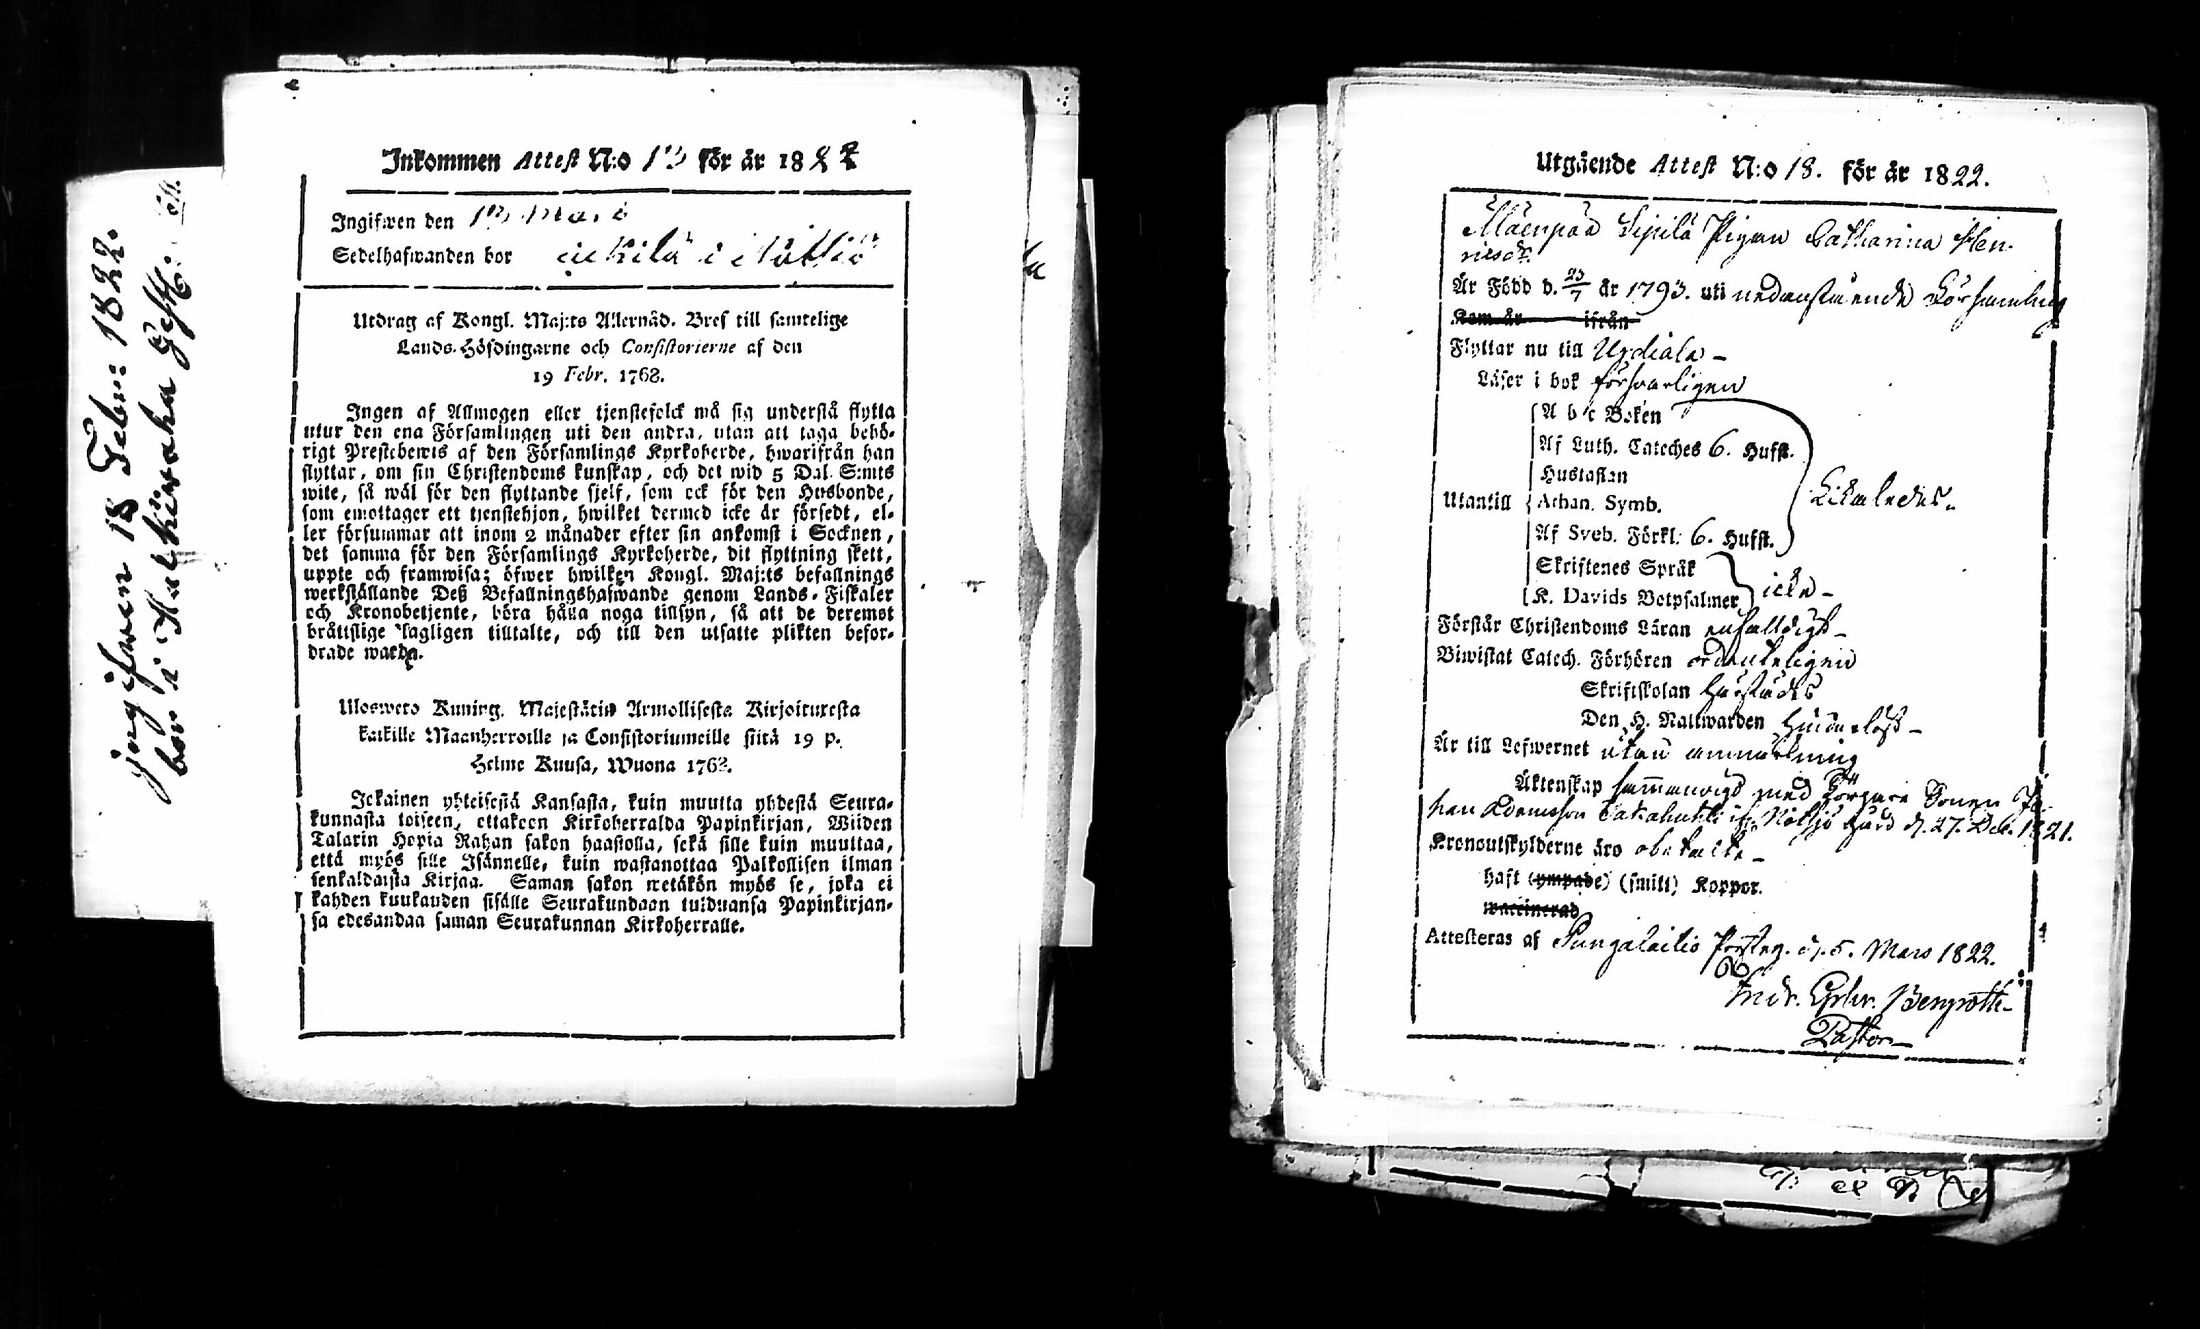 ingifwen 18 Febr: 1822.
bor i
Inkommen Attest N:o 13 för år 1822
Ingifwen den 13 Mars
Sedelhafwanden bor
Utdrag af Kongl. Maj:ts Allernåd. Bref till samtelige
Lands-Höfdingarne och Consistorierne af den
19 Febr. 1768.
Ingen af Allmogen eller tjenstefolck må sig understå flytta
utur den ena Församlingen uti den andra, utan att taga behö-
rigt Prestebewis af den Församlings Kyrkoherde, hwarifrån han
flyttar, om sin Christendoms kunskap, och det wid 5 Dal. S:mts
wite, så wäl för den flyttande sjelf, som ock för den Husbonde,
som emottager ett tjenstehjon, hwilket dermed icke är försedt, el-
ler försummar att inom 2 månader efter sin ankomst i Socknen,
det samma för den Församlings Kyrkoherde, dit flyttning skett,
uppte och framwisa; öfwer hwilken Kongl. Maj:ts befallnings
werkställande Deß Befallningshafwande genom Lands-Fiskaler
och Kronobetjente, böra hålla noga tillsyn, så att de deremot
bråttslige lagligen tilltalte, och till den utsatte plikten befor-
drade warda.
Ulosweto Kuning. Majestätin Armollisesta Kirjoituxesta
kaikille Maanherroille ja Consistoriumeille siitä 19 p.
Helme Kuusa, Wuona 1768.
Jokainen yhteisestä Kansasta, kuin muutta yhdestä Seura-
kunnasta toiseen, ottakoon Kirkoherralda Papinkirjan, Wiiden
Talarin Hopia Rahan sakon haastolla, sekä sille kuin muuttaa,
että myös sille Isännelle, kuin wastanottaa Palkollisen ilman
senkaldaista Kirjaa. Saman sakon wetäkön myös se, joka ei
kahden kuukauden sisälle Seurakundaan tulduansa Papinkirjan-
sa edesandaa saman Seurakunnan Kirkoherralle.
Utgående Attest N:o 18. för år 1822.
Mäenpää Sipilä Pigan Catharina Hen-
ricsdr
Är Född d. 23/7 år 1793. uti nedanstående Församling
Kom år ifrån
Flyttar nu till Urdiala –
Läser i bok försvarligen
A b c Boken
Af Luth. Cateches 6. Hufst.
Hustaflan
Utantill Athan. Symb. Likaledes.
Af Sveb. Förkl: 6. Hufst.
Skriftenes Språk
K. Davids Botpsalmer icke –
Förstår Christendoms Läran enfalldigt –
Biwistat Catech. Förhören ordenteligen
Skriftskolan Härstädes
Den H. Nattwarden Hinderlöst –
Är till Lefwernet utan anmärkning
Äktenskap sammanvigd med Torpare Sonen Jo-
han Adamsson härd d. 27. Dec. 1821.
Kronoutskylderne äro obetalte –
haft (ympade) (smitt) Koppor.
waccinerad
Attesteras af Pungalaitio d. 5. Mars 1822.
Andr. Gabr. Bergroth –
Pastor –